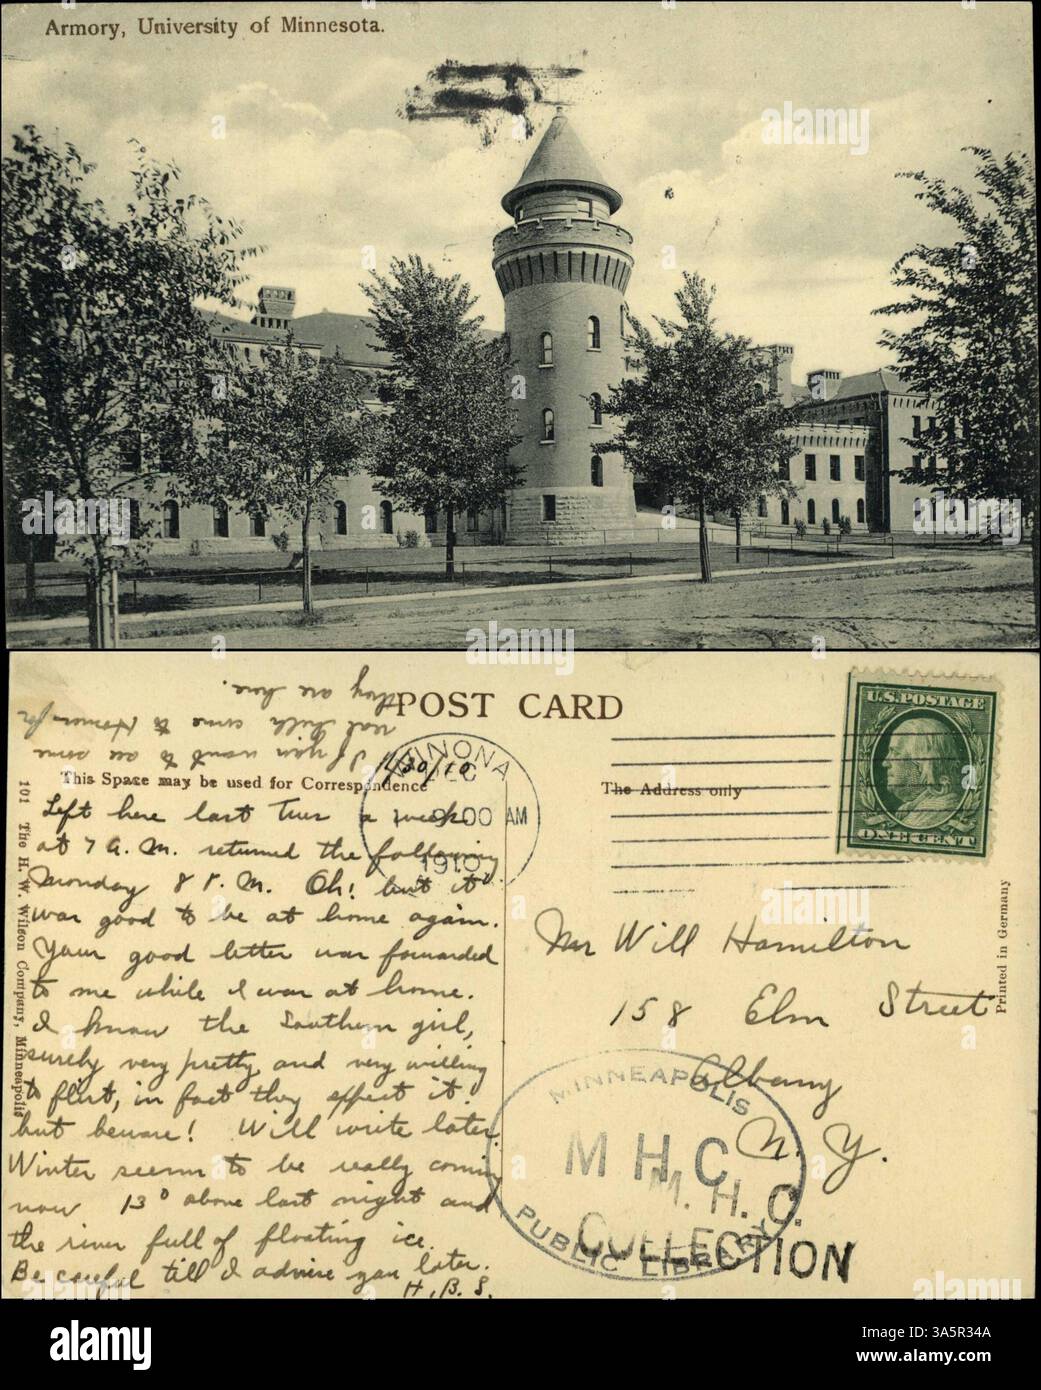 Armory, University of Minnesota.
If you want to see some
real bulls come to Hamon for
they are here.
POST CARD
This Space may be used for Correspondence
The Address only
11/30/10
WINONA
DEC
1
9:00 AM
1910
U.S. POSTAGE
ONE CENT
Left here last Tues a week
at 7 A.M. returned the following
Monday 8 P.M. Oh! but it
was good to be at home again.
Your good letter was forwarded
to me while I was at home.
I know the Southern girl,
surely very pretty and very willing
to flirt, in fact they expect it.
but beware! Will write later.
Winter seems to be really coming
now 13° above last night and
the river full of floating ice.
Be careful till I advise you later.
H.B.S.
Mr Will Hamilton
158 Elm Street
Albany
N.Y.
MINNEAPOLIS
PUBLIC LIBRARY
M H C
M. H. C.
COLLECTION
101 The H. W. Wilson Company, Minneapolis
Printed in Germany
alamy
Image ID: 2A5R34A
www.alamy.com